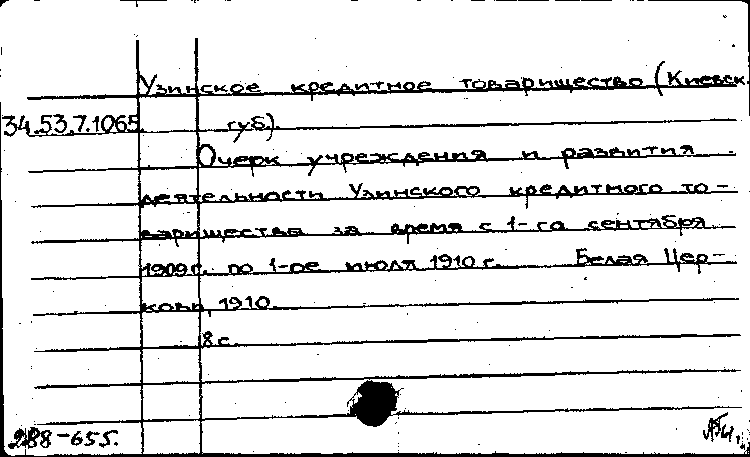 Узинское кредитное товарищество (Киевск.
34.53.7.1065. губ).
Очерк учреждения и развития
деятельности Узинского кредитного то-
варищества за время с 1-го сентября
1909 г. по 1-ое июля 1910 г. Белая Цер-
ковь, 1910.
8 с.
288-655.